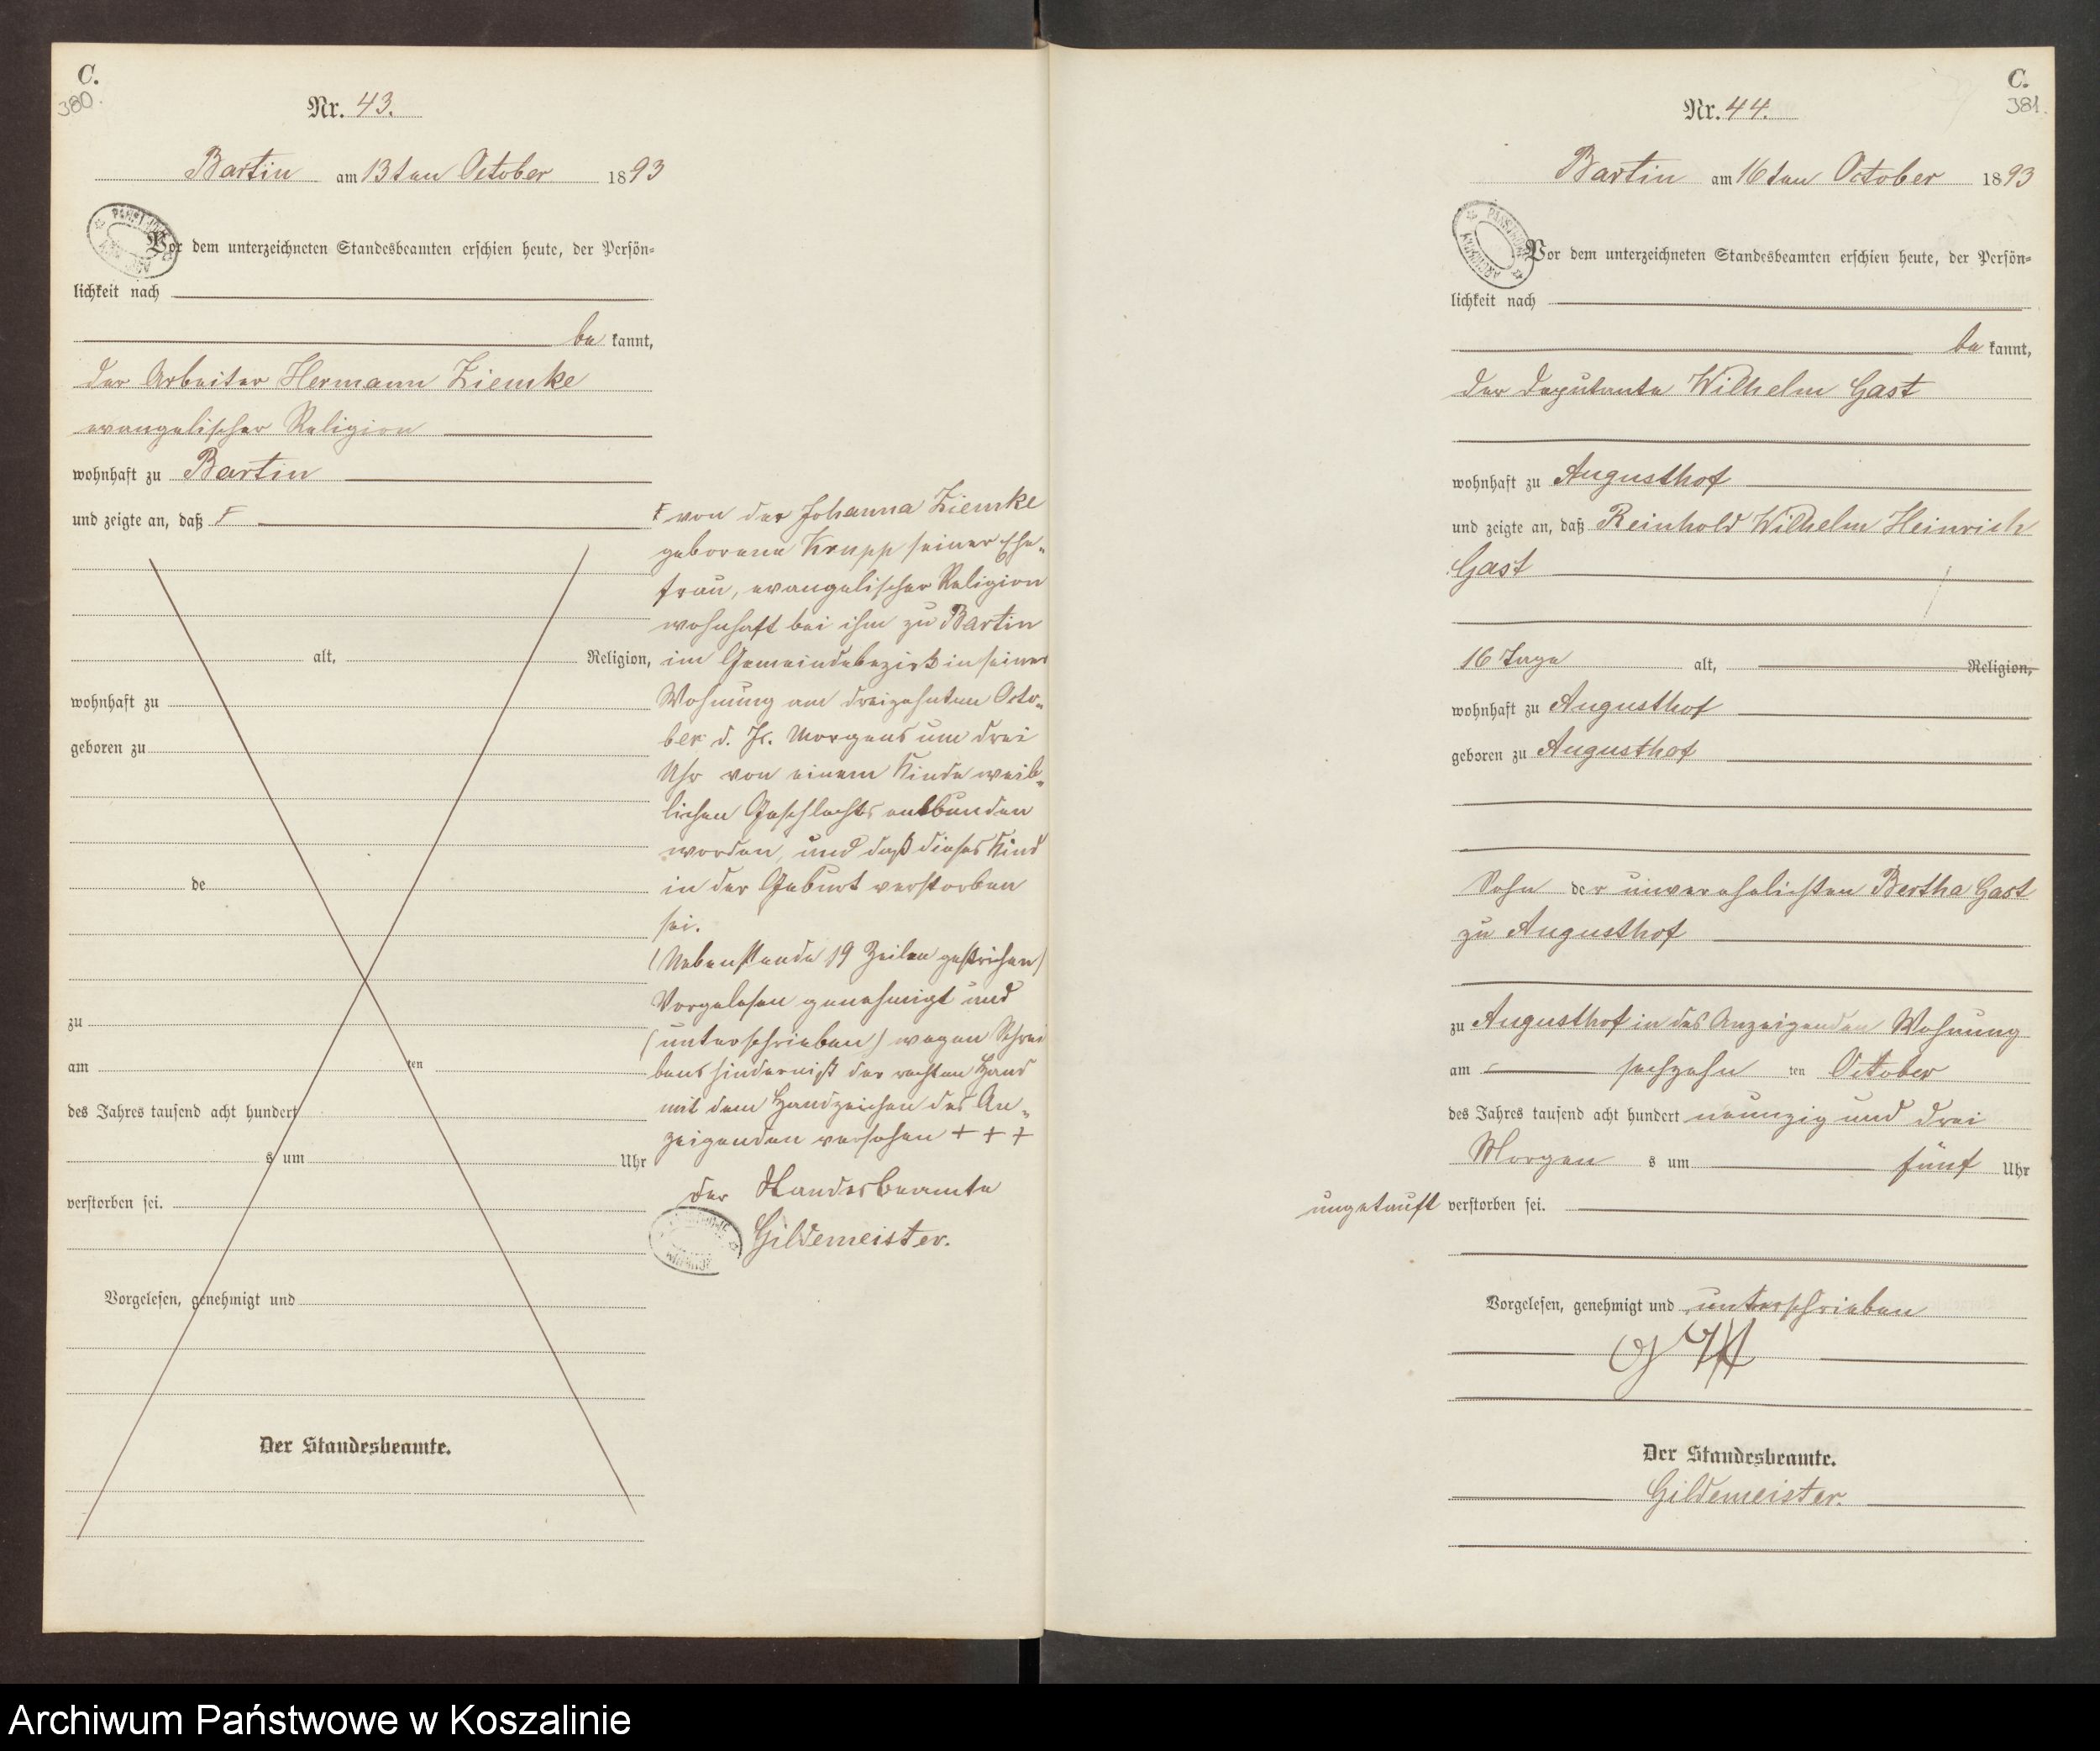 C.
380.
Nr. 43.
Bartin am 13ten October 1893
Vor dem unterzeichneten Standesbeamten erschien heute, der Persön=
lichkeit nach
be kannt,
der Arbeiter Hermann Ziemke
evangelischer Religion
wohnhaft zu Bartin
und zeigte an, daß F
alt, Religion,
wohnhaft zu
geboren zu
de
zu
am ten
des Jahres tausend acht hundert
s um Uhr
verstorben sei.
Vorgelesen, genehmigt und
Der Standesbeamte.
F von der Johanna Ziemke
geborene Krupp seiner Ehe-
frau, evangelischer Religion
wohnhaft bei ihm zu Bartin
im Gemeindebezirk in seiner
Wohnung am dreizehnten Octo-
ber d. Js. Morgens um drei
Uhr von einem Kinde weib-
lichen Geschlechts entbunden
worden, und daß dieses Kind
in der Geburt verstorben
sei.
(Nebenstehende 19 Zeilen gestrichen)
Vorgelesen genehmigt und
(unterschrieben) wegen Schrei
bens hinderniß der rechten Hand
mit dem Handzeichen des An-
zeigenden versehen + + +
der Standesbeamte
Gildemeister.
C.
381.
Nr. 44.
Bartin am 16ten October 1893
Vor dem unterzeichneten Standesbeamten erschien heute, der Persön=
lichkeit nach
be kannt,
der Deputante Wilhelm Gast
wohnhaft zu Augusthof
und zeigte an, daß Reinhold Wilhelm Heinrich
Gast
16 Tage alt, Religion,
wohnhaft zu Augusthof
geboren zu Augusthof
Sohn der unverehelichten Bertha Gast
zu Augusthof
zu Augusthof in des Anzeigenden Wohnung
am sechzehn ten October
des Jahres tausend acht hundert neunzig und drei
Morgen s um fünf Uhr
ungetauft verstorben sei.
Vorgelesen, genehmigt und unterschrieben
Der Standesbeamte.
Gildemeister.
Archiwum Państwowe w Koszalinie